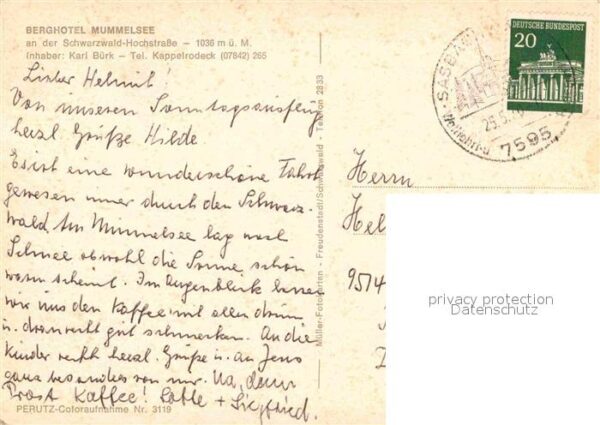 BERGHOTEL MUMMELSEE
an der Schwarzwald-Hochstraße — 1036 m ü. M.
Inhaber: Karl Bürk — Tel. Kappelrodeck (07842) 265
Lieber Helmut!
Von unserem Sonntagsausflug
herzl. Grüße Hilde
Es ist eine wunderschöne Fahrt
gewesen immer durch den Schwarz-
wald. Am Mummelsee lag noch
Schnee obwohl die Sonne schön
warm scheint. Im Augenblick lassen
wir uns den Kaffee mit allem drum
u. dran recht gut schmecken. An die
Kinder recht herzl. Grüße u. an Jens
ganz besonders von mir. Na, dann
Prost Kaffee! Lotte + Siegfried.
PERUTZ-Coloraufnahme Nr. 3119
Müller-Fotokarten - Freudenstadt/Schwarzwald - Telefon 2833
DEUTSCHE BUNDESPOST
20
7595
Herrn
Hel
9514
privacy protection
Datenschutz